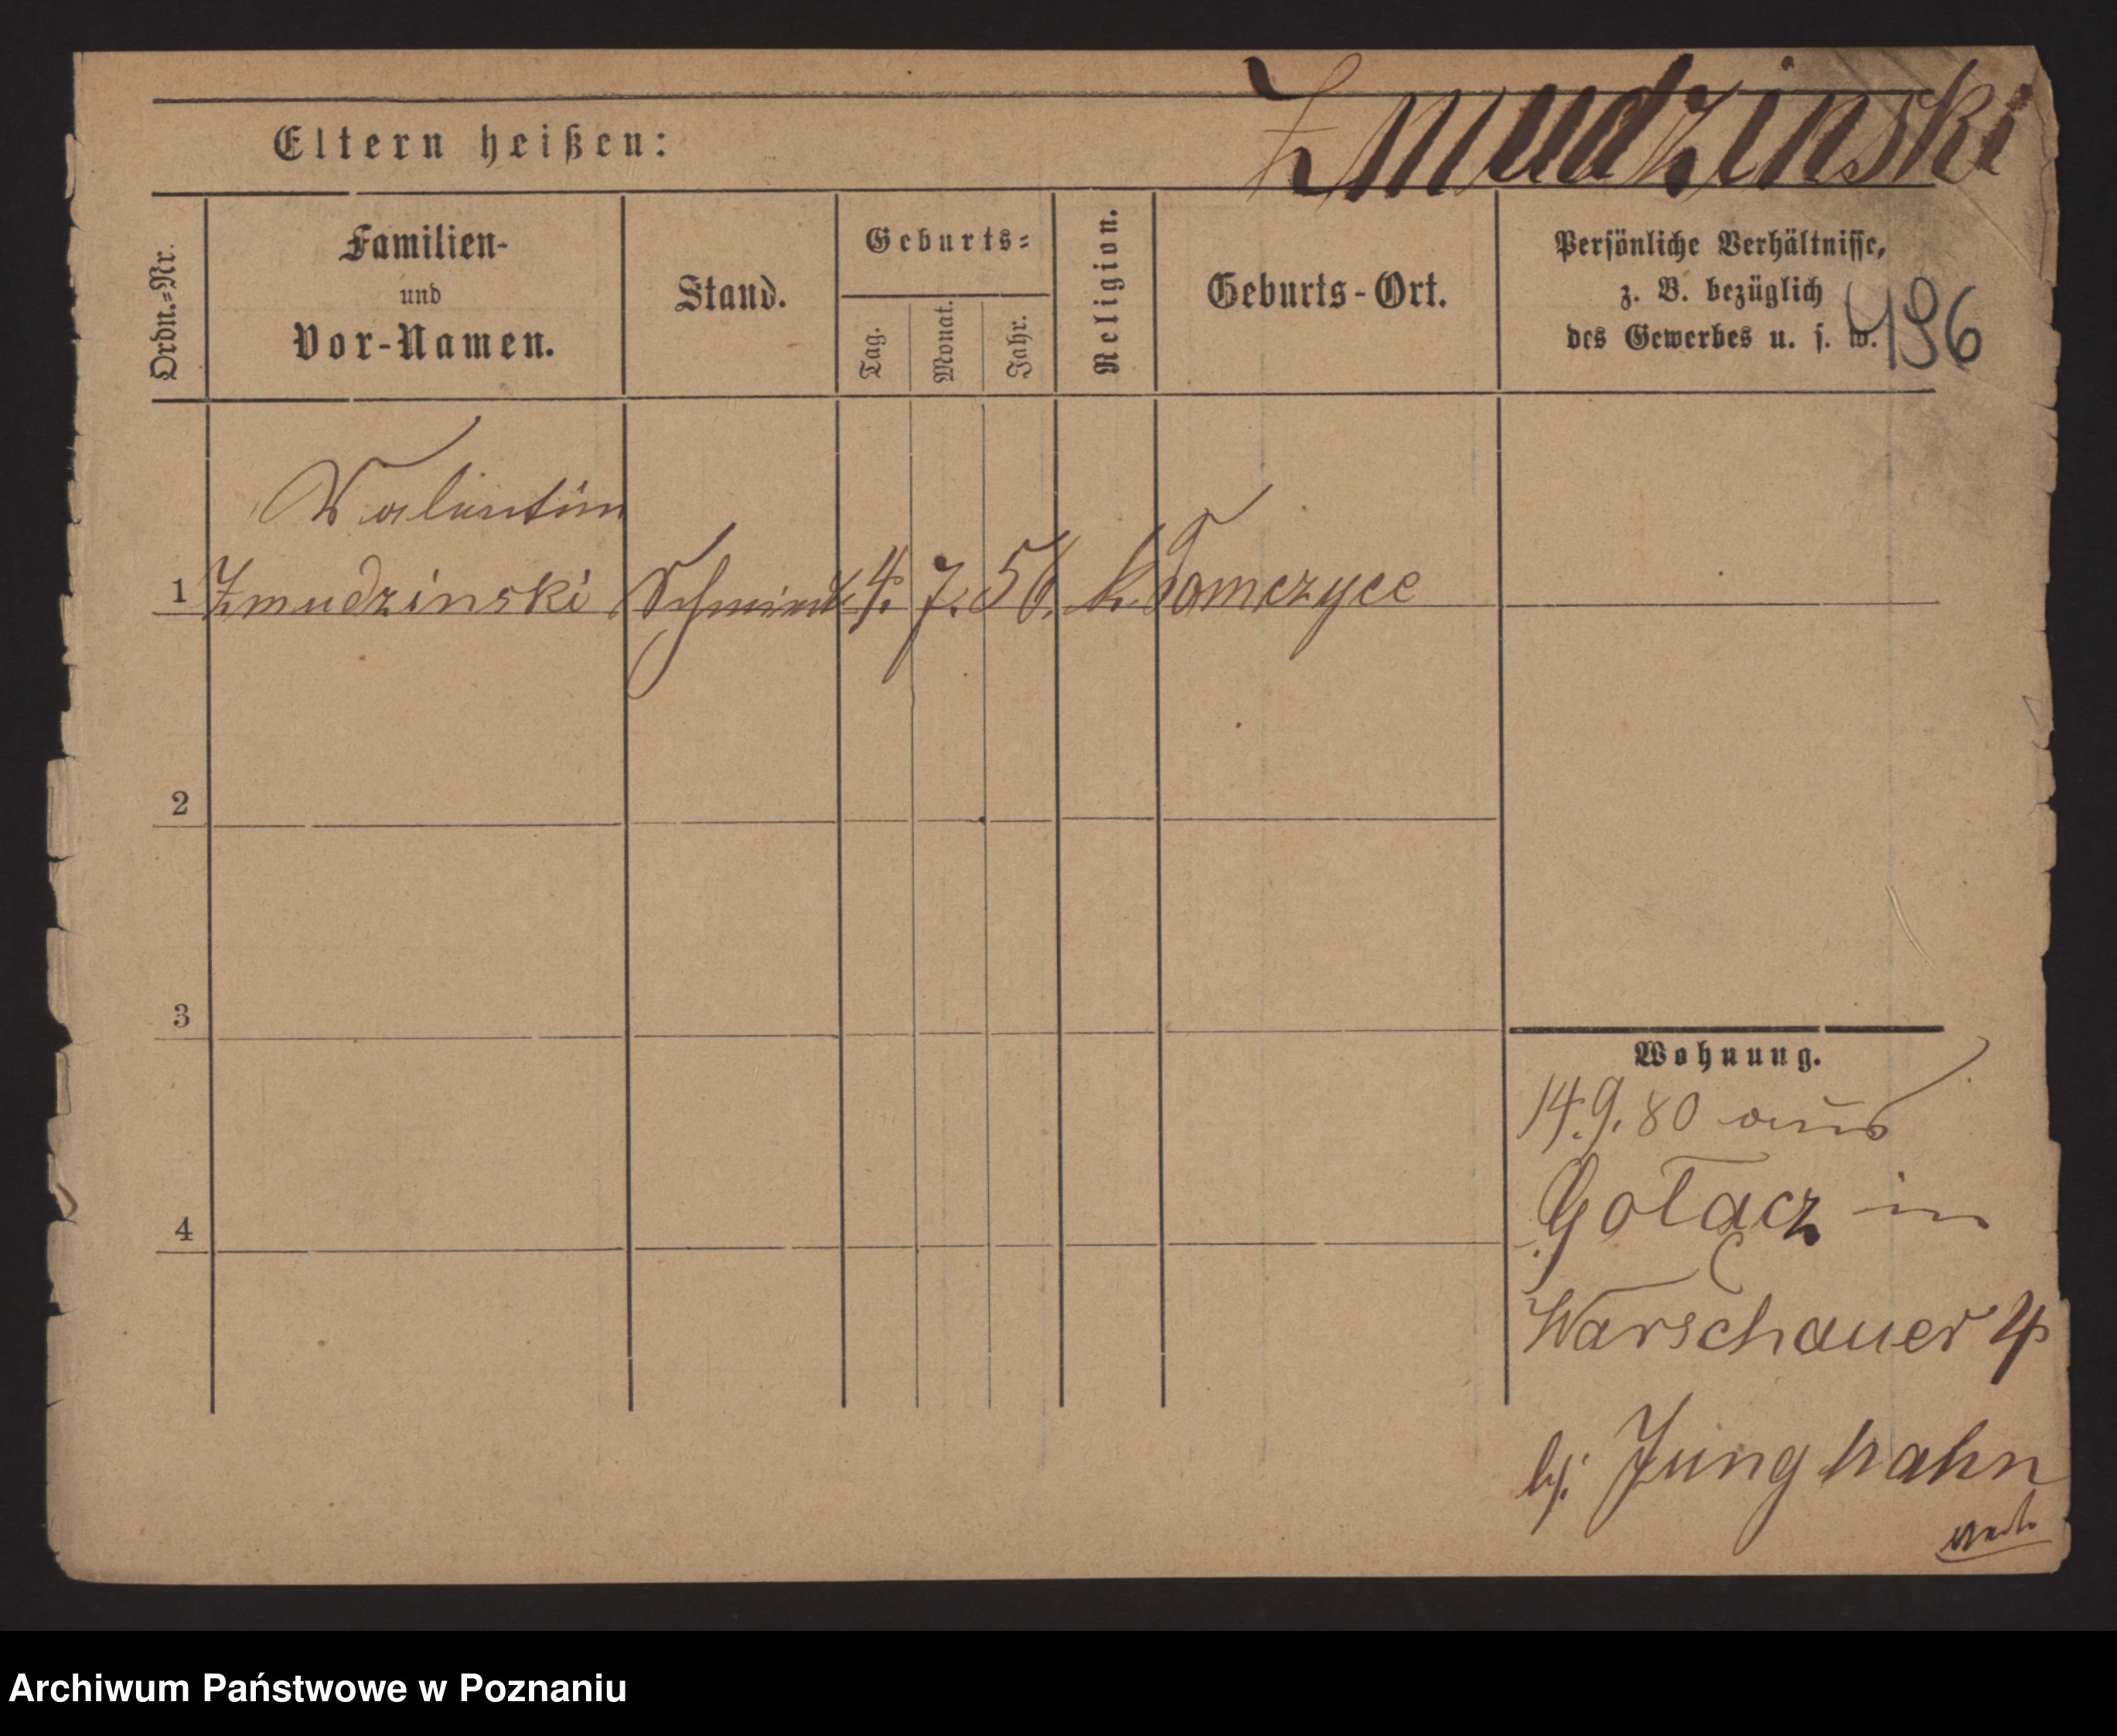 Zmudzinski
Eltern heißen:
Ordn.=Nr.
Familien-
und
Vor-Namen.
Stand.
Geburts=
Tag.
Monat.
Jahr.
Religion.
Geburts-Ort.
Persönliche Verhältnisse,
z. B. bezüglich
des Gewerbes u. s. w.
496
Valentin
1 Zmudzinski 4. 7. 56. k. Tomczyce
2
3
4
Wohnung.
14.9.80 aus
Gołącz in
Warschauer 4
bj. Junghahn
Archiwum Państwowe w Poznaniu